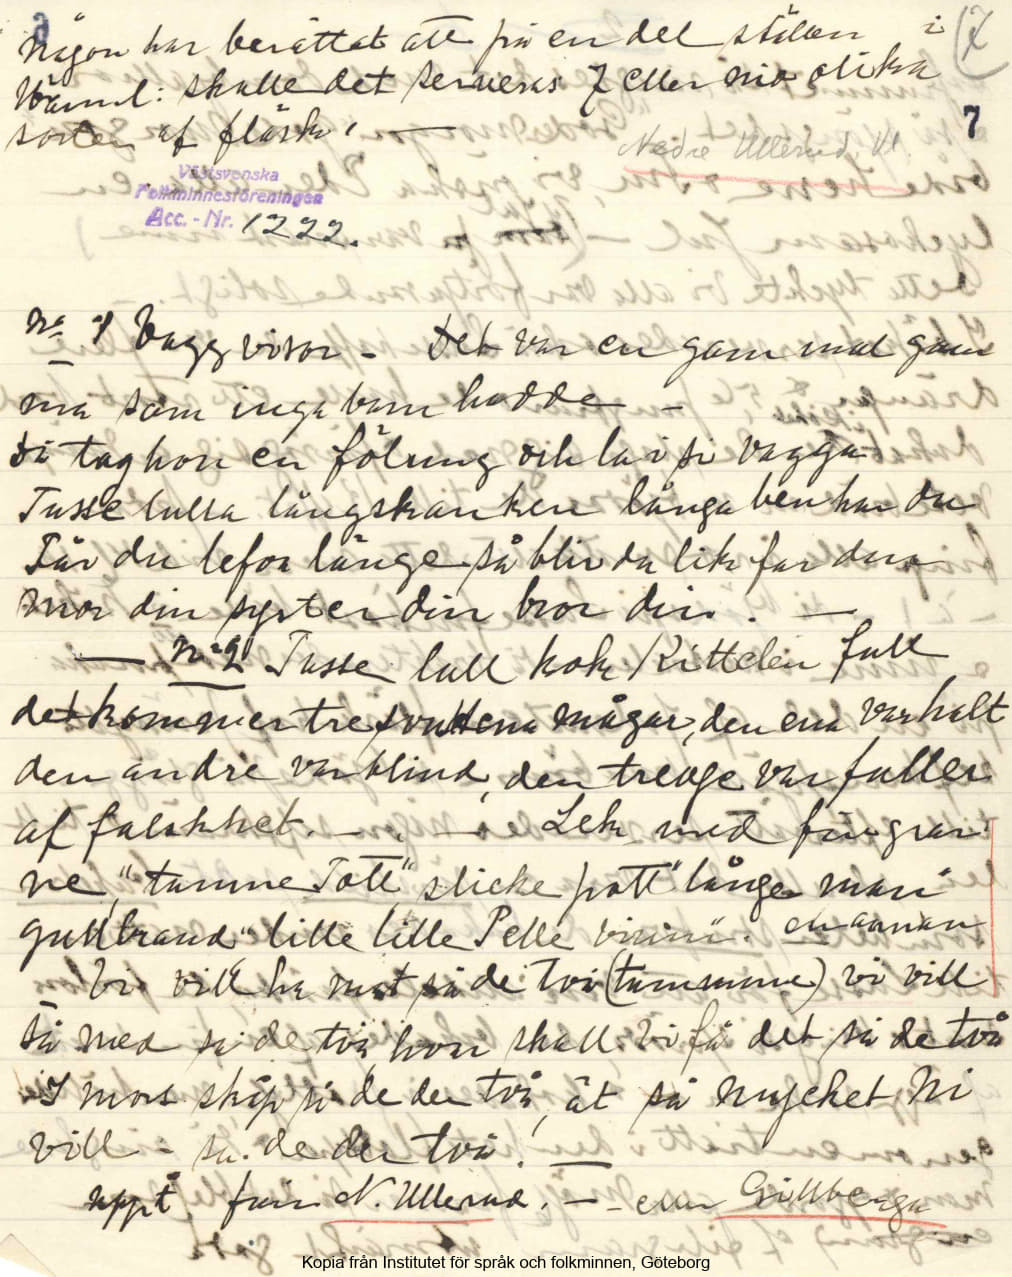 någon har berättat att på en del ställen i
Värml: skulle det serveras 7 eller nio olika
sorter af fläsk. —
7
7
Nedre Ullerud, Vl
Västsvenska
Folkminnesföreningen
Acc. - Nr. 1222.
No 1 Vaggvisor - Det var en gammal gum
ma som inga barn hadde -
så tag hon en fölung och la i si vagga
Tusse lulla långskanken långa ben har du
Får du lefva länge så blir du lik far din
mor din syster din bror din. —
— No 2 Tusse lull kok Kittelen full
det kommer tre måga, den ena var halt
den andre var blind, den tredge var fuller
af falskhet. — . — Lek med fingrar
ne, "tumme Tott" slicke pott" långe man"
gullbrand" lille lille Pelle en annan
Vi vill ha mat sa de två (tummme) vi vill
få med sa de två hvar skall vi få det sa de två
I mors skåp sa de der två, ät så mycket Ni
vill - sa de der två. —
uppt från N. Ullerud. — eller Gillberga
Kopia från Institutet för språk och folkminnen, Göteborg